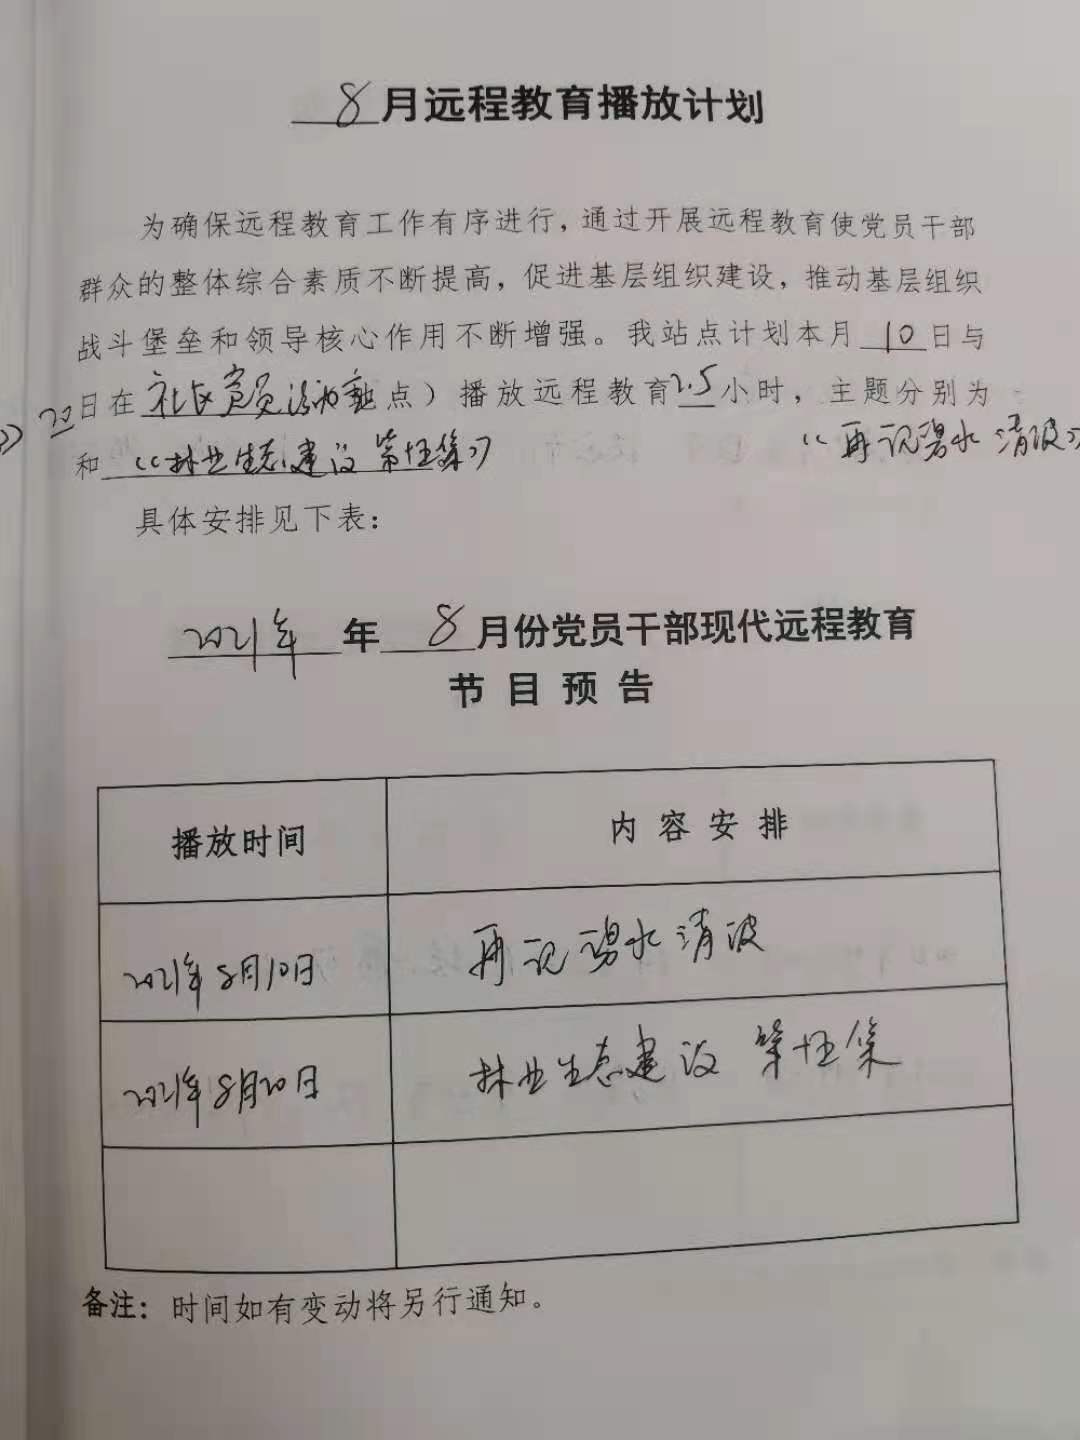 8月远程教育播放计划
为确保远程教育工作有序进行，通过开展远程教育使党员干部
群众的整体综合素质不断提高，促进基层组织建设，推动基层组织
战斗堡垒和领导核心作用不断增强。我站点计划本月10日与
20日在社区党员活动室点）播放远程教育2.5小时，主题分别为
》和《林业生态建设 第 集》《再现碧水清波》
具体安排见下表：
2021年年8月份党员干部现代远程教育
节目预告
播放时间 内容安排
2021年8月10日 再现碧水清波
2021年8月20日 林业生态建设 第 集
备注：时间如有变动将另行通知。